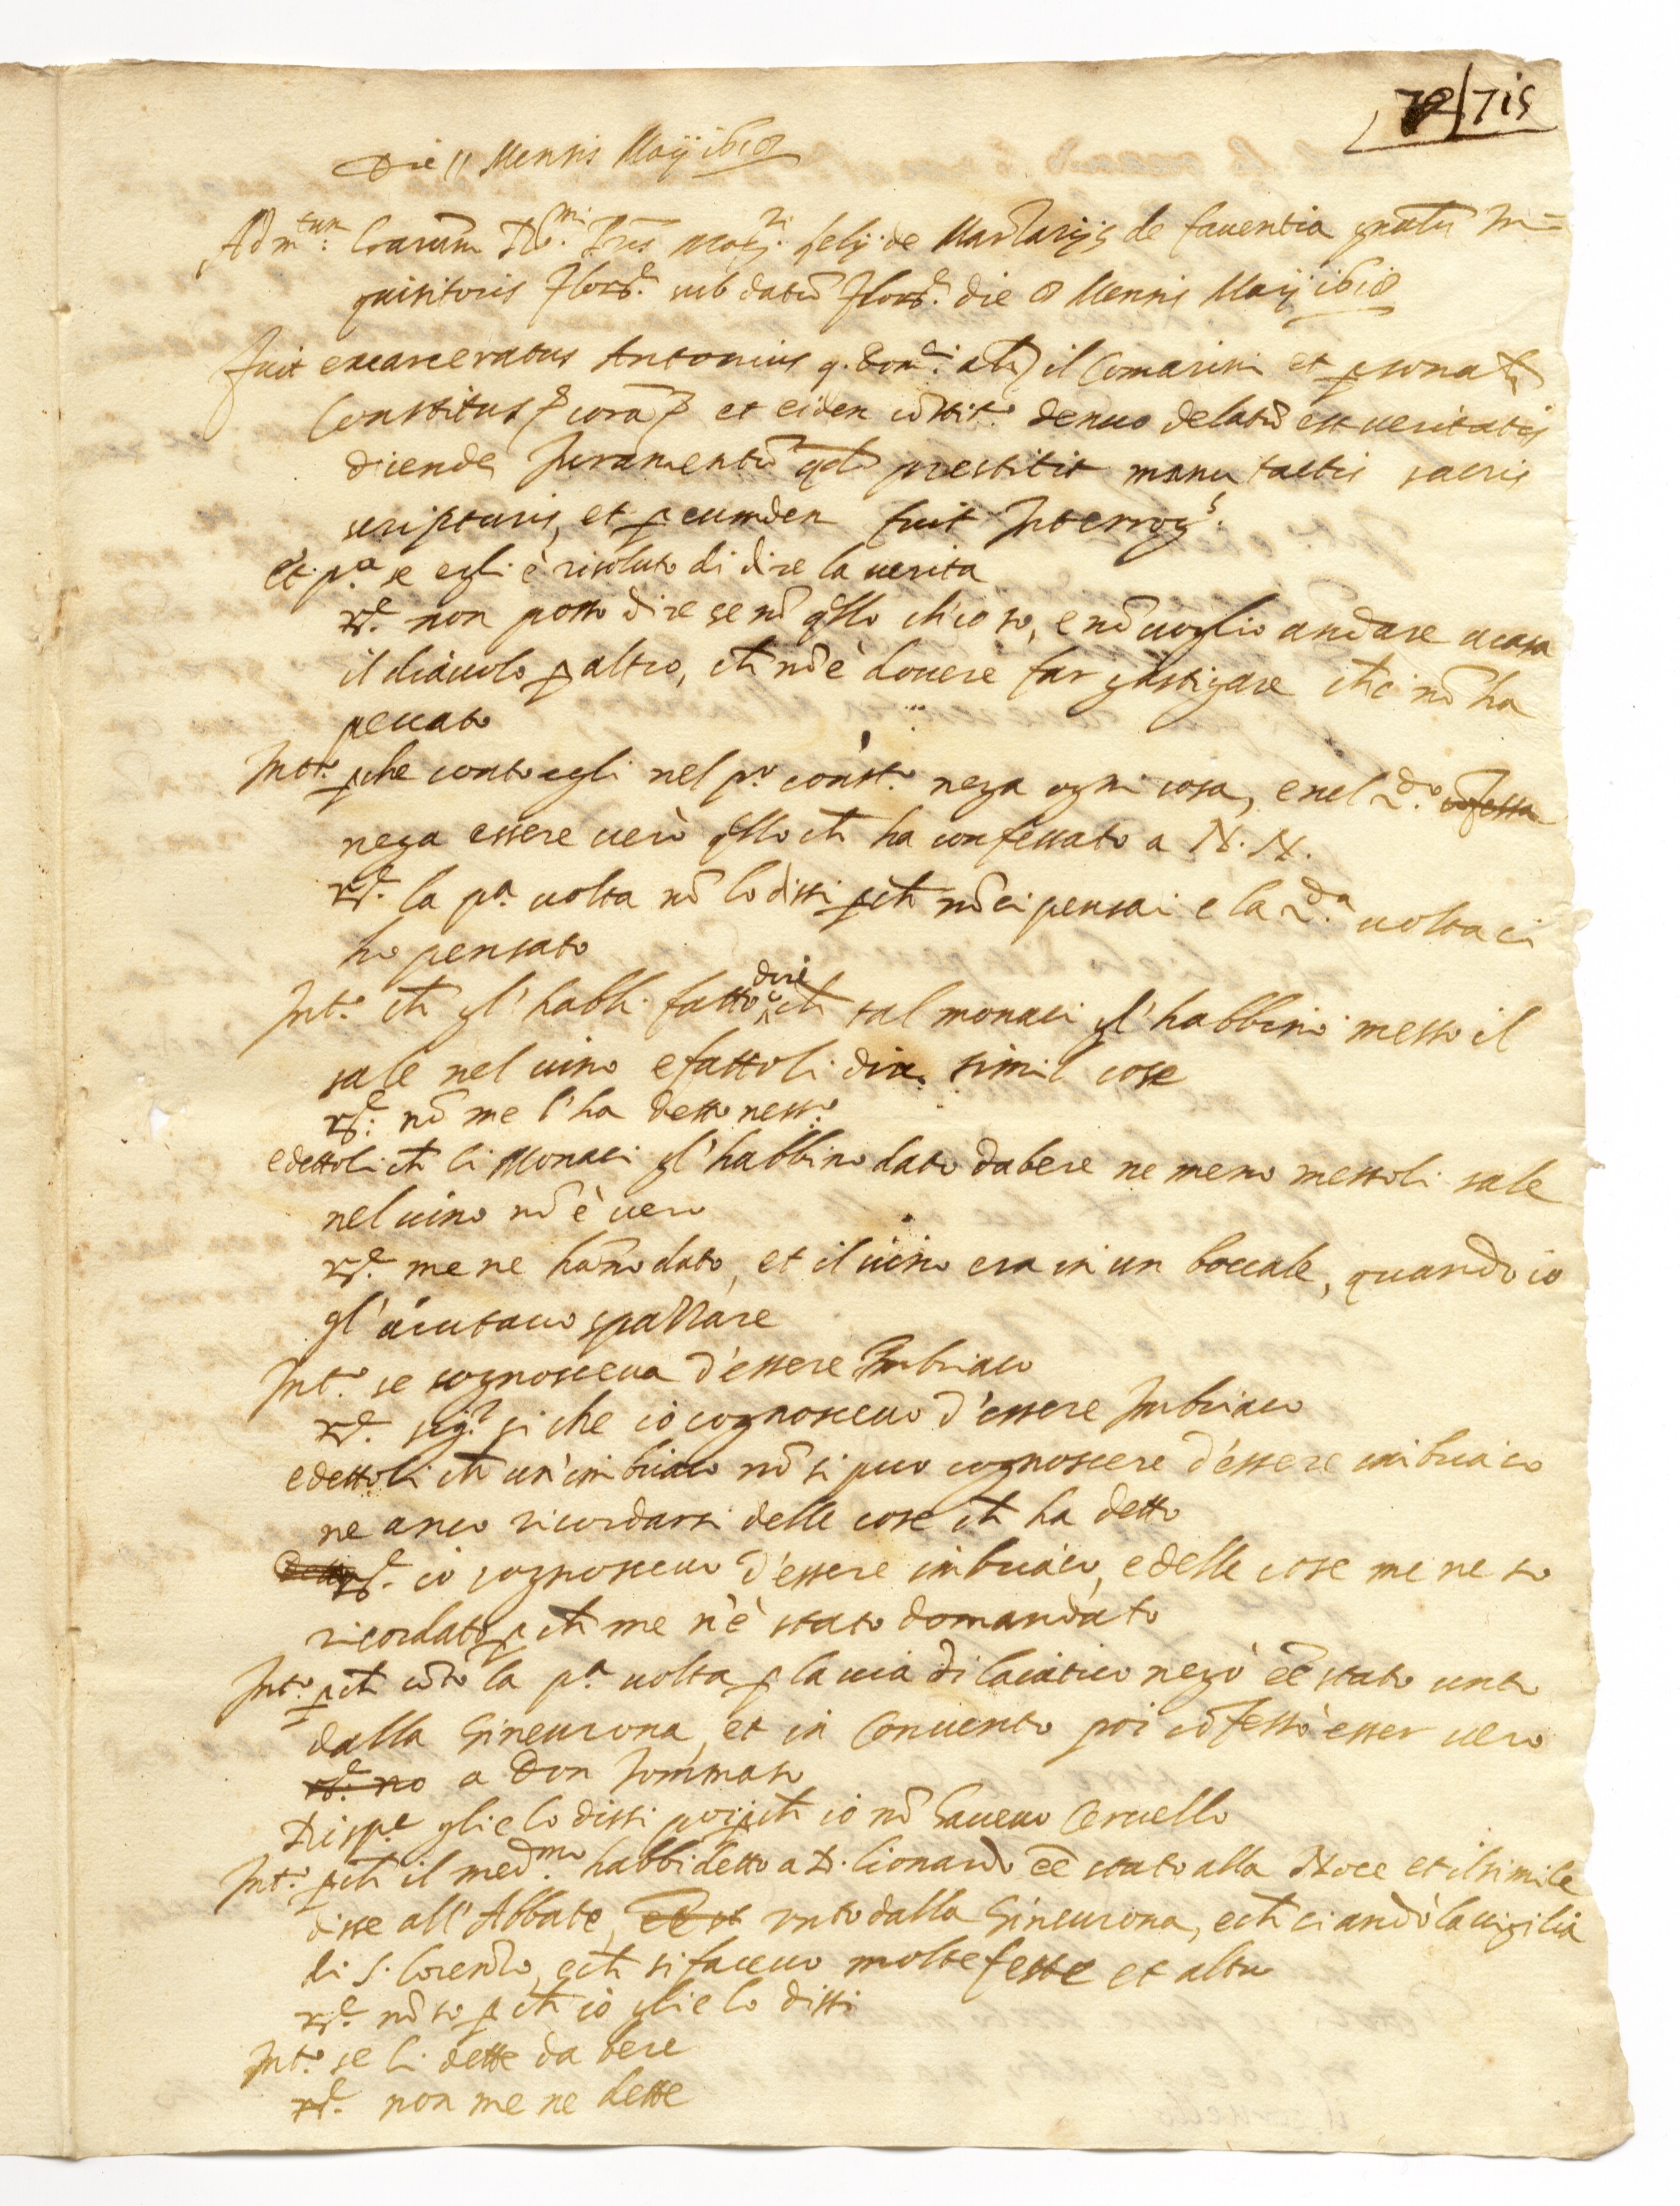 72/715
Die 11 Mensis Maij 1618
Adm.tum: lrarum R.mi Pris mag.ri felij de Mar Tarijs de faventia gnalis In=
quisitoris flore. sub datū flore. die 8 Mensis Maij 1618
fuit excarceratus Antonius q. Dom.ci als il Comarini et psonalr
Constitus p corā p et eidem cōstit.o denuo delatū est veritatis
dicende Juramentū qd prestitit manu tactis sacris
scripturis, et p eumdem fuit Interrog.s:
Et p.a se egli è risoluto di dire la verita
R.e non posso dire se nō qllo ch'io so, e nō voglio andare a casa
il diavolo p altro, ch nō è dovere far gastigare chi nō ha
peccato
Int.o pche conto egli nel p.o const.o nega ogni cosa, e nel 2.do cōfessa
nega essere vero qllo ch ha confessato a N. N.
R.e la p.a volta nō lo dissi pch nō ci pensai e la 2.da volta ci
ho pensato
Int.o ch gl'habbi fatto dire ch tal monaci gl'habbino messo il
sale nel vino e fattoli dire simil cose
R.e: nō me l'ha detto ness.o
e dettoli ch li Monaci gl'habbino dato da bere ne meno messoli sale
nel vino nō è vero
R.e me ne hāno dato, et il vino era in un boccale, quando io
gl'aiutavo spazzare
Int.o se cognosceva d'essere Imbriaco
R.e sig.r si che io cognoscevo d'essere Imbriaco
e dettoli ch un'imbriaco nō si puo cognoscere d'essere imbriaco
ne anco ricordarsi delle cose ch ha detto
Detto R.e. io cognoscevo d'essere imbriaco, e delle cose me ne so
ricordato pch me n'è stato domandato
Int.o pch cōto la p.a volta p la via di laiatico negò eē stato unto
dalla Ginevrona, et in Convento poi cōfessò esser vero
R.e no a Don Tommaso
Risp.e glielo dissi poi pch io nō havevo Cervello
Int.o pch il med.mo habbi detto a D. Lionardo eē stato alla Noce et il simile
disse all'Abbate, eē st unto dalla Ginevrona, e ch ci andò la vigilia
di S. Lorenzo, e ch si facevo molte feste et altro
R.e nō so pch io glielo dissi
Int.o se li dette da bere
R.e non me ne dette